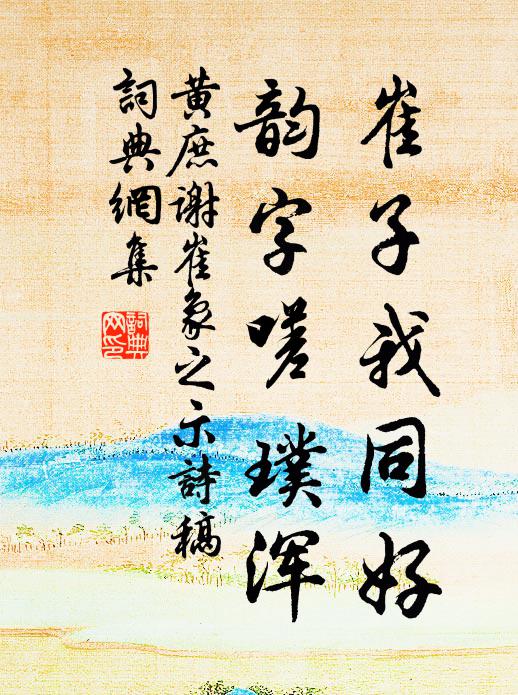 崔子我同好
韵字嗟璞浑
黄庶谢崔象之示詩稿
詞典網集
詞典网印